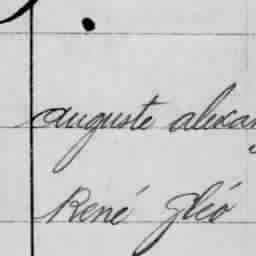 auguste alexan
René Gléo